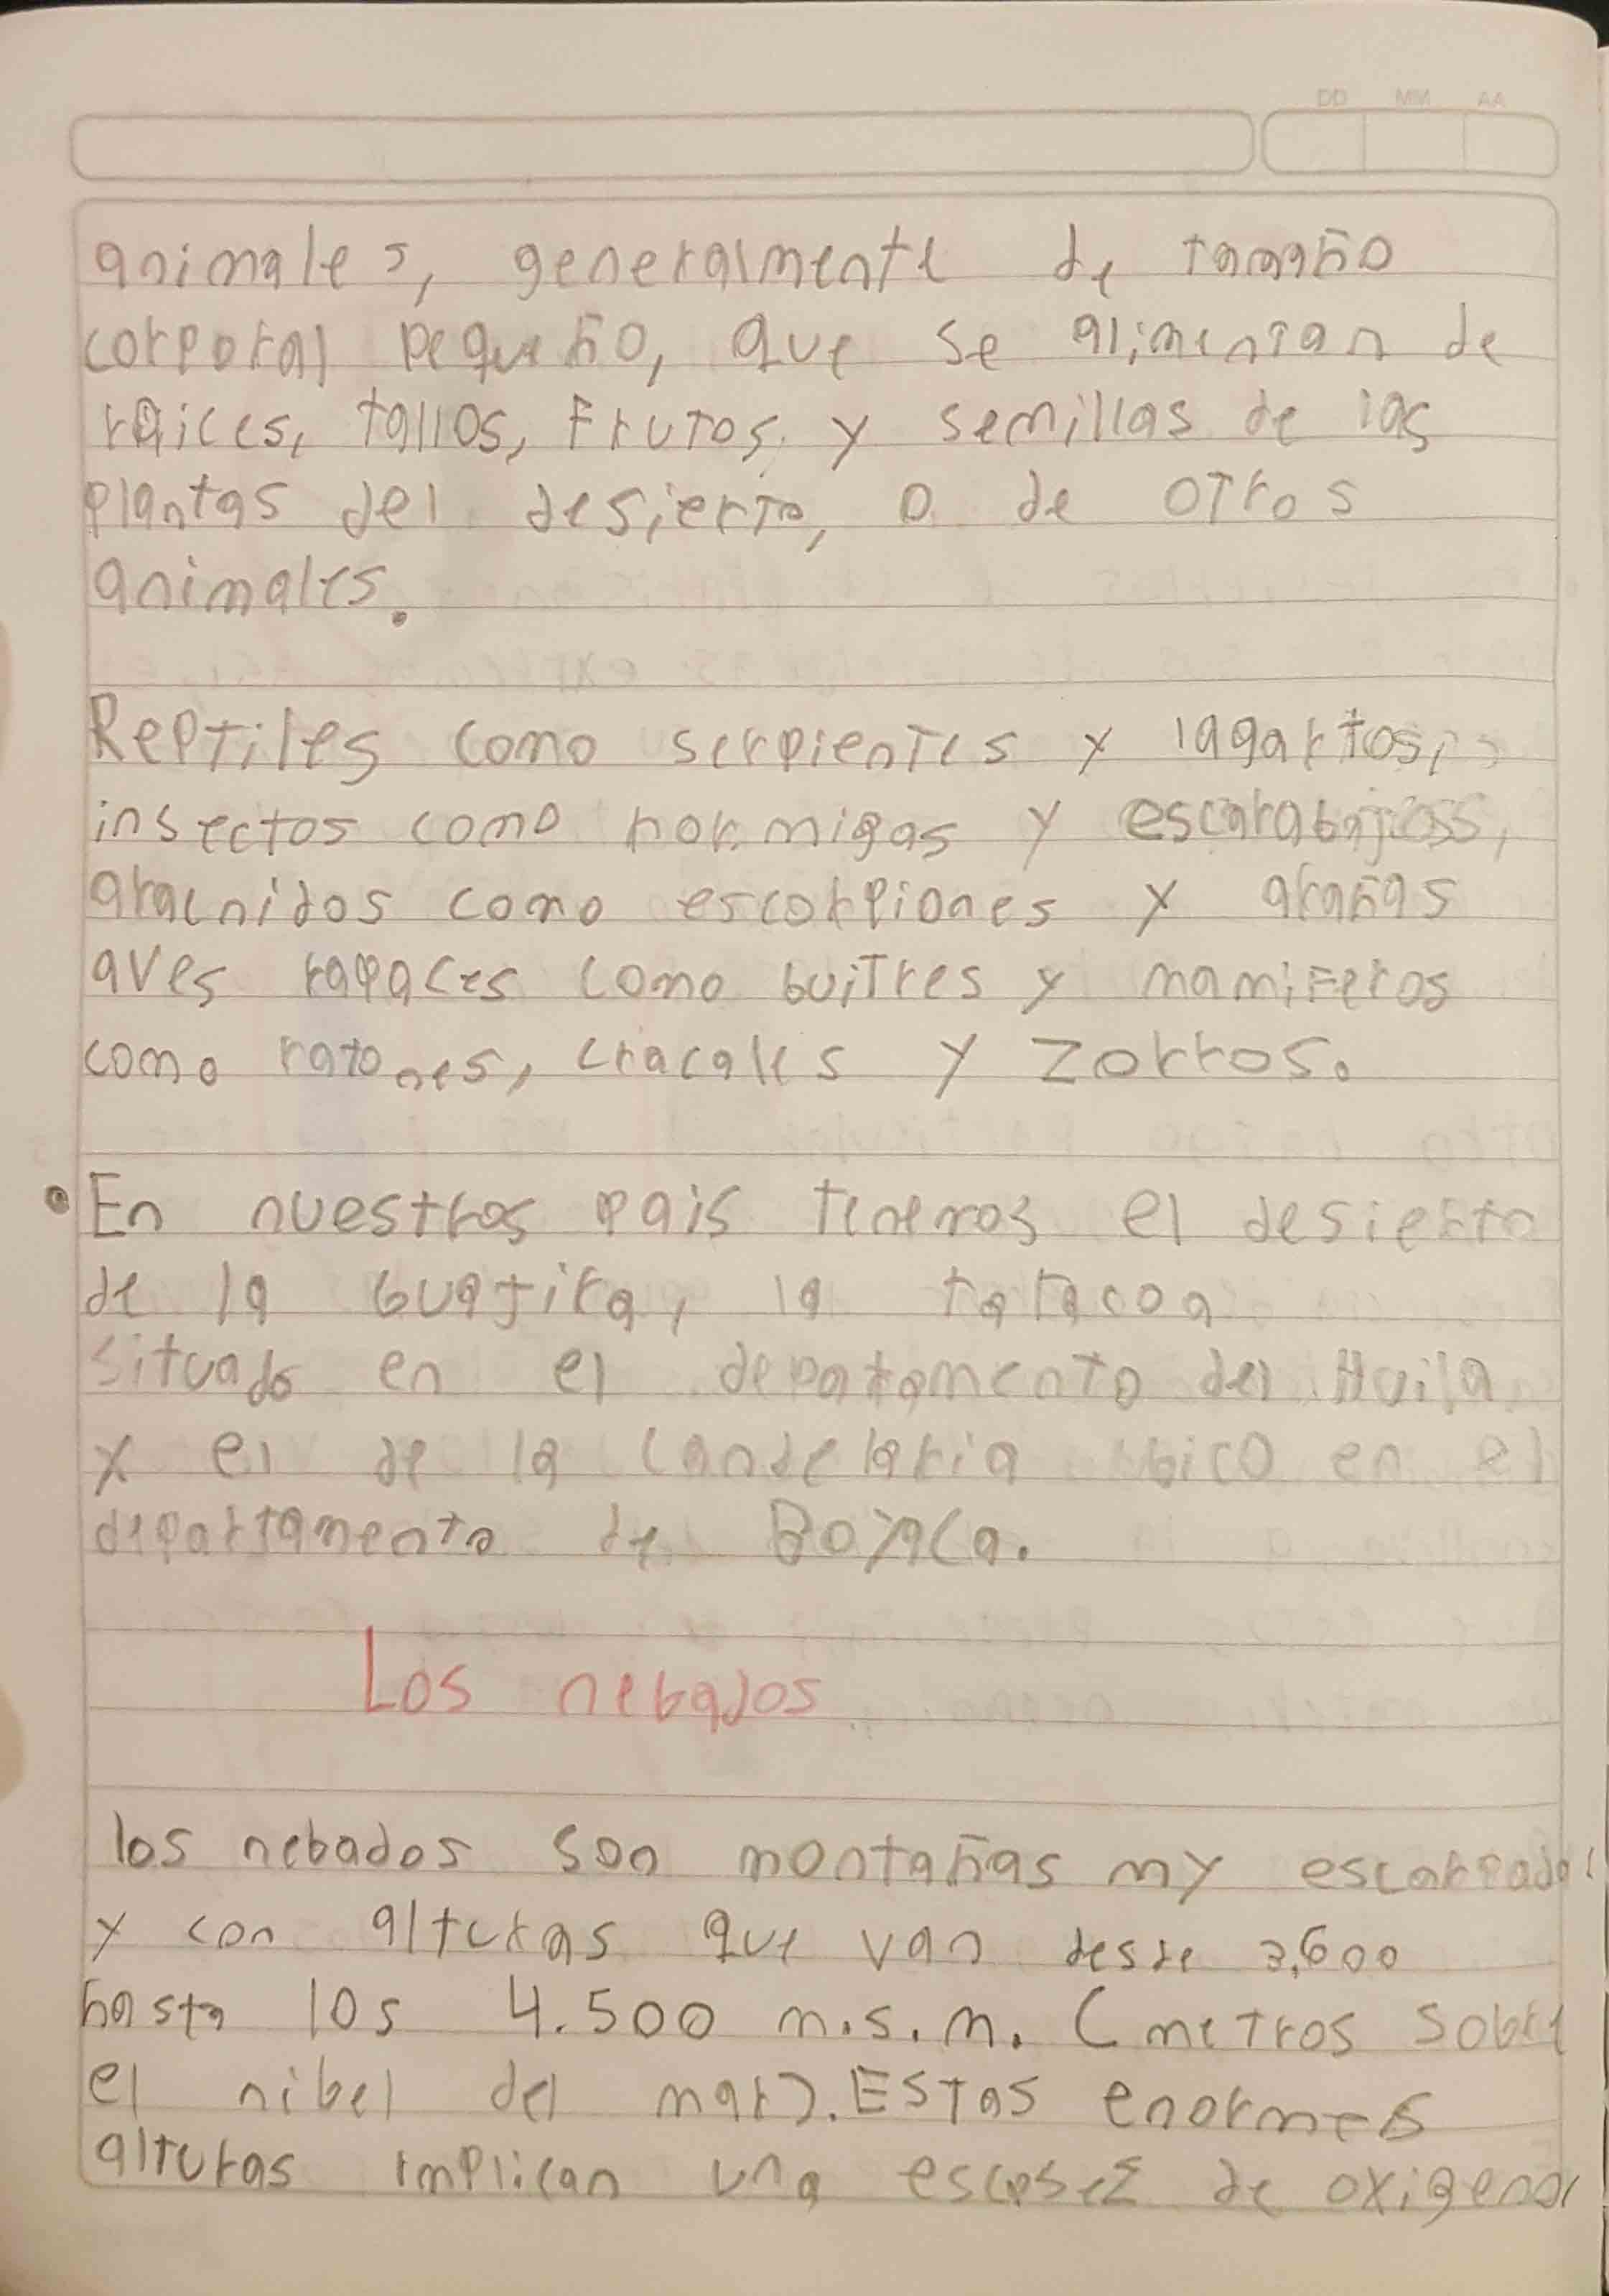 DD MM AA
animales, generalmente de tamaño
corporal pequeño, que se alimentan de
raices, tallos, Frutos, y semillas de las
plantas del desierto, o de otros
animales.
Reptiles como serpientes y lagartos,
insectos como hormigas y escarabajos,
aracnidos como escorpiones y arañas
aves rapaces como buitres y mamiferos
como ratones, chacales y Zorros.
• En nuestros pais tenemos el desierto
de la Guajira, la tatacoa
situado en el departamento del Huila
y el de la Candelaria ubico en el
departamento de Boyaca.
Los nebados
los nebados son montañas my escarpadas
y con alturas que van desde 3,600
hasta los 4.500 m.s.m. (metros sobre
el nibel del mar). Estas enormes
alturas implican una escasez de oxigeno